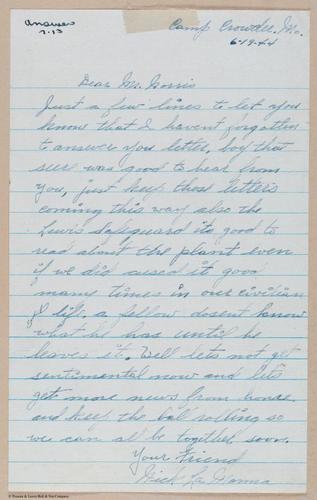 answer
7-13
Camp Crowder, Mo.
6-19-44
Dear Mr. Norris
Just a few lines to let you
know that I haven't forgotten
to answer you letter, boy that
sure was good to hear from
you, just keep those letters
coming this way also the
Lewis Safeguard its good to
read about the plant even
if we did cused it good
many times in our civilian
life. a fellow dosent know
what he has until he
leaves it. Well lets not get
sentimental now and lets
get more news from home
and keep the ball rolling so
we can al be together soon.
Your Friend
Nick La